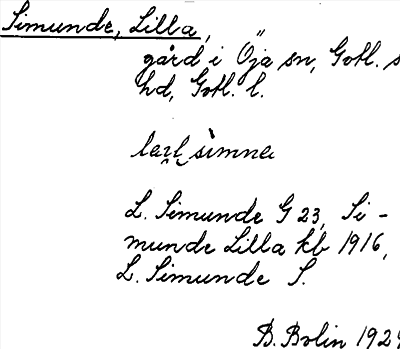 Simunde, Lilla,
gård i Öja sn, Gotl. s
hd, Gotl. l.
simna
L. Simunde G 23, Si-
munde Lilla kb 1916,
L. Simunde S.
B. Bolin 192